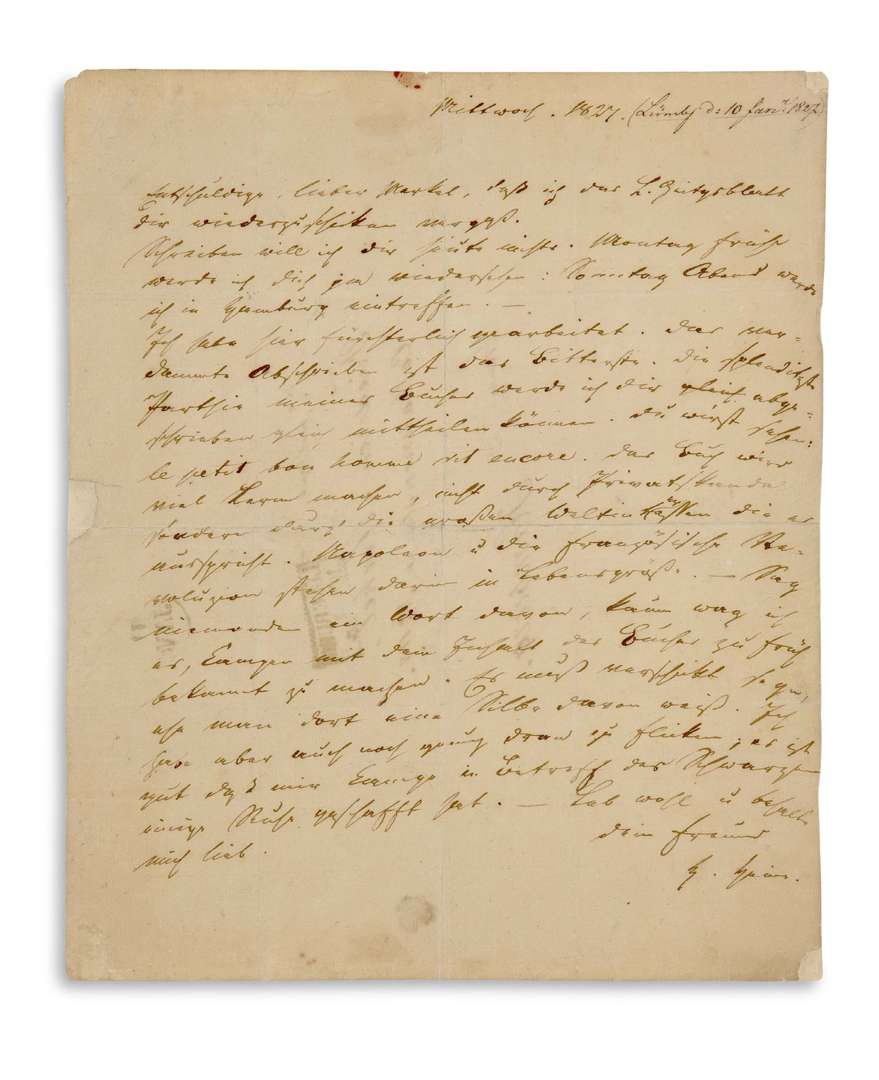 Mittwoch. 1827. (Lünebg d: 10 Jan. 1827)
Entschuldige, lieber Merkel, daß ich das L. Zeitgsblatt
dir wiederzuschicken vergaß.
Schreiben will ich dir heute nichts. Montag früh
werde ich dich ja wiedersehen: Sonntag Abend werde
ich in Hamburg eintreffen. —
Ich habe hier fürchterlich gearbeitet. Das ver-
dammte Abschreiben ist das Bitterste. Die splendidste
Parthie meines Buches werde ich dir gleich abge-
schrieben mittheilen können. Du wirst sehen:
le petit bon homme vit encore. Das Buch wird
viel Lerm machen, nicht durch Privatskandal
sondern durch die großen Weltinteressen die es
ausspricht. Napoleon u die französische Re-
voluzion stehen darin in Lebensgröße. — Sag
niemanden ein Wort davon, kaum wag ich
es, Campen mit dem Inhalt des Buches zu früh
bekannt zu machen. Es muß verschickt seyn,
ehe man dort eine Silbe davon weiß. Ich
habe aber auch noch genug dran zu flicken; es ist
gut daß mir Campe in Betreff des Schwarzen
einige Ruhe geschafft hat. — Leb wohl u behalte
mich lieb.
dein Freund
H. Heine.